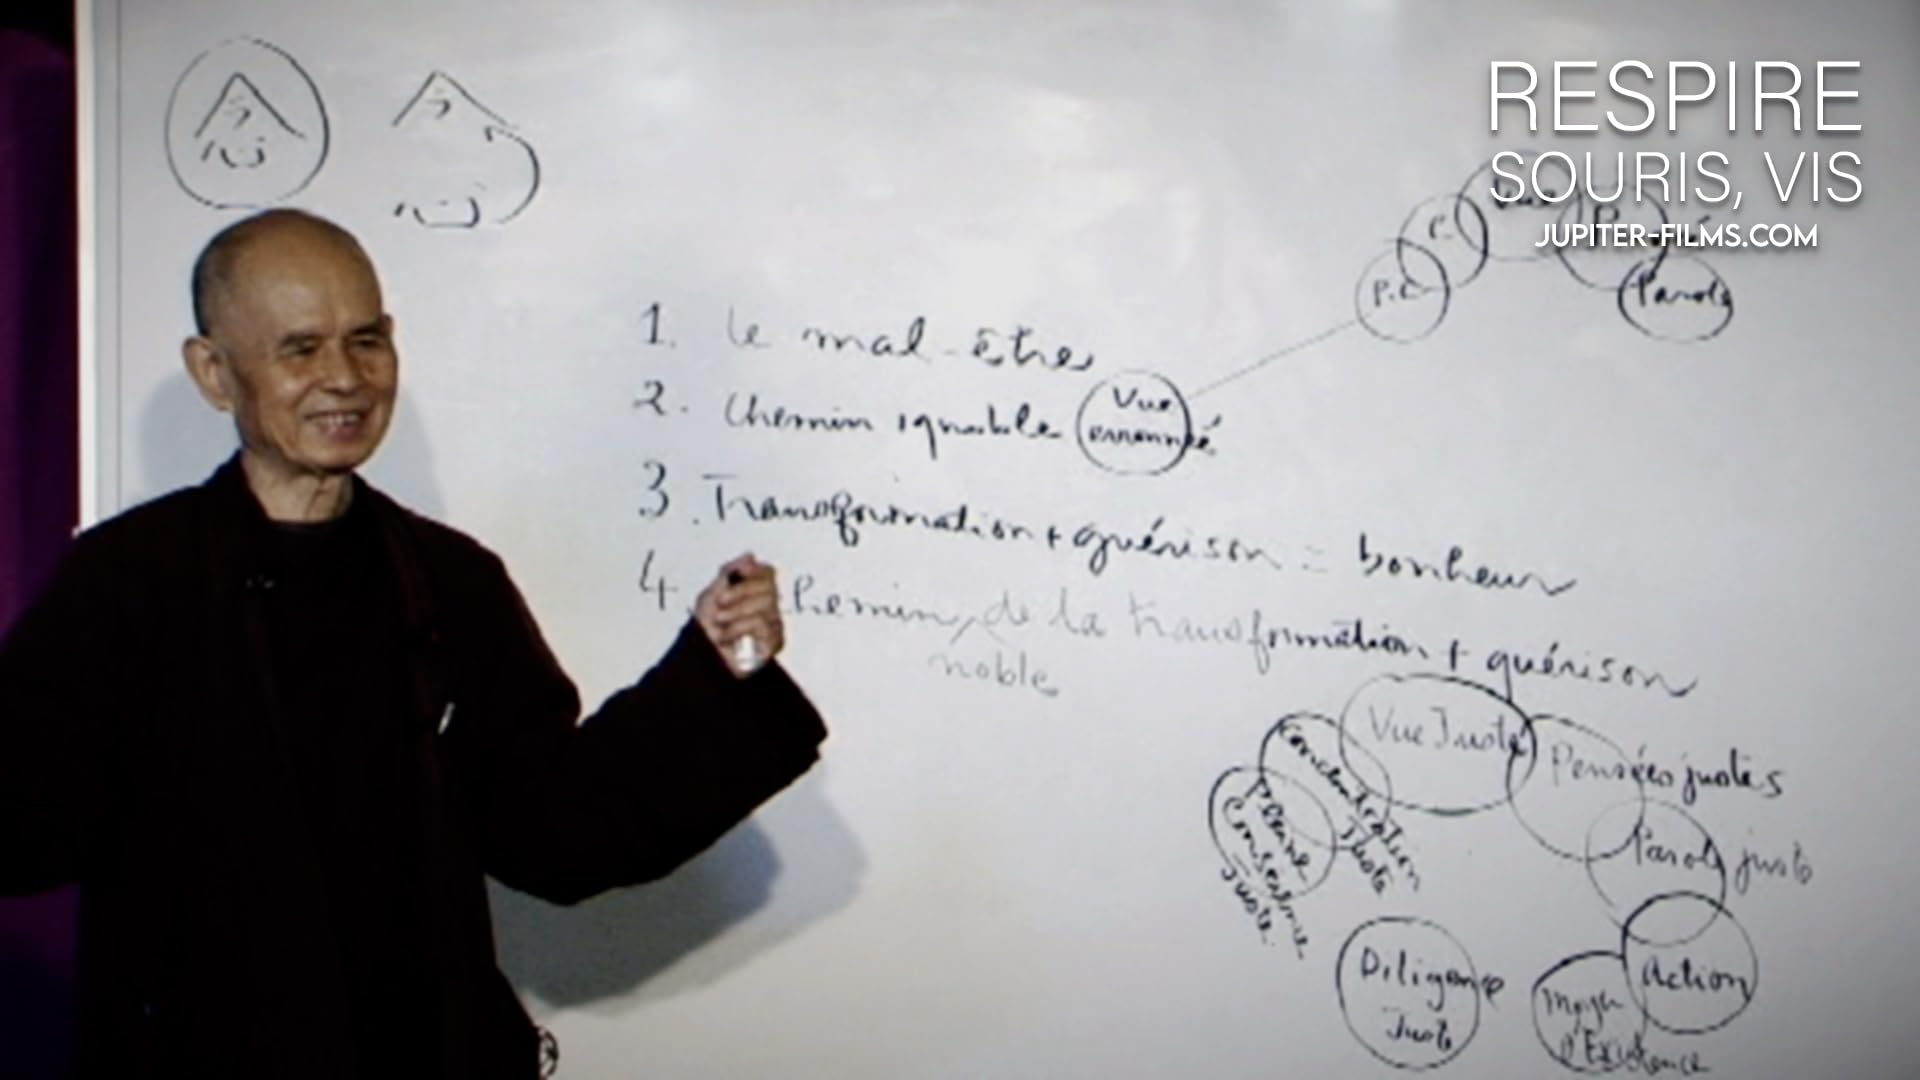 念
RESPIRE
SOURIS, VIS
JUPITER-FILMS.COM
P.C
P.
Vue
P.
Parole
1. Le mal-être
2. Chemin ignoble Vue erronnée
3. Transformation + guérison = bonheur
4. Chemin de la transformation + guérison
noble
Vue Juste
Pensées justes
Parole juste
Action
Moyen
d'Existence
Diligence
Juste
Pleine
Conscience
Juste
Concentration
Juste